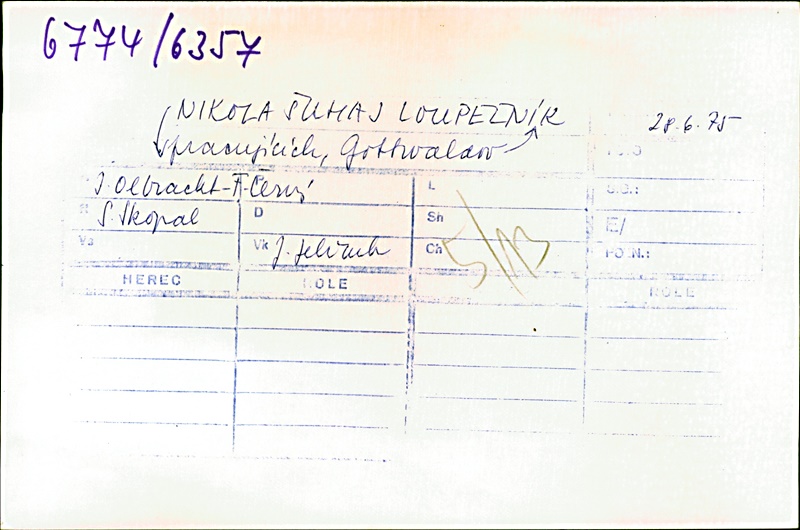 6774/6357
NIKOLA ŠUHAJ LOUPEŽNÍK 28.6.75
pracujících, Gottwaldov
I. Olbracht-F. Černý L S.G.:
S. Skopal D Sh E/
Vs Vk J. Jelínek Ch FO.N.:
HEREC ROLE ROLE